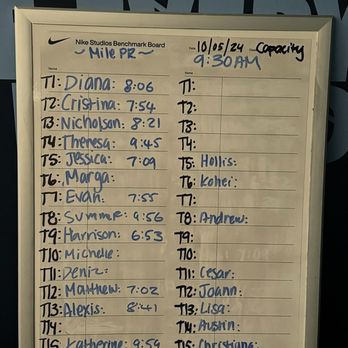 Nike Studios Benchmark Board
~ Mile PR ~
Date 10/05/24 Capacity
9:30AM
Name
Name
T1: Diana: 8:06
T2: Cristina: 7:54
T3: Nicholson: 8:21
T4: Theresa: 9:45
T5: Jessica: 7:09
T6: Marga:
T7: Evan: 7:55
T8: Summer: 9:56
T9: Harrison: 6:53
T10: Michelle:
T11: Deniz:
T12: Matthew: 7:02
T13: Alexis: 8:41
T14:
T15: Katherine: 9:59
T1:
T2:
T3:
T4:
T5: Hollis:
T6: Kohei:
T7:
T8: Andrew:
T9:
T10:
T11: Cesar:
T12: Joann:
T13: Lisa:
T14: Austin:
T15: Christiana: